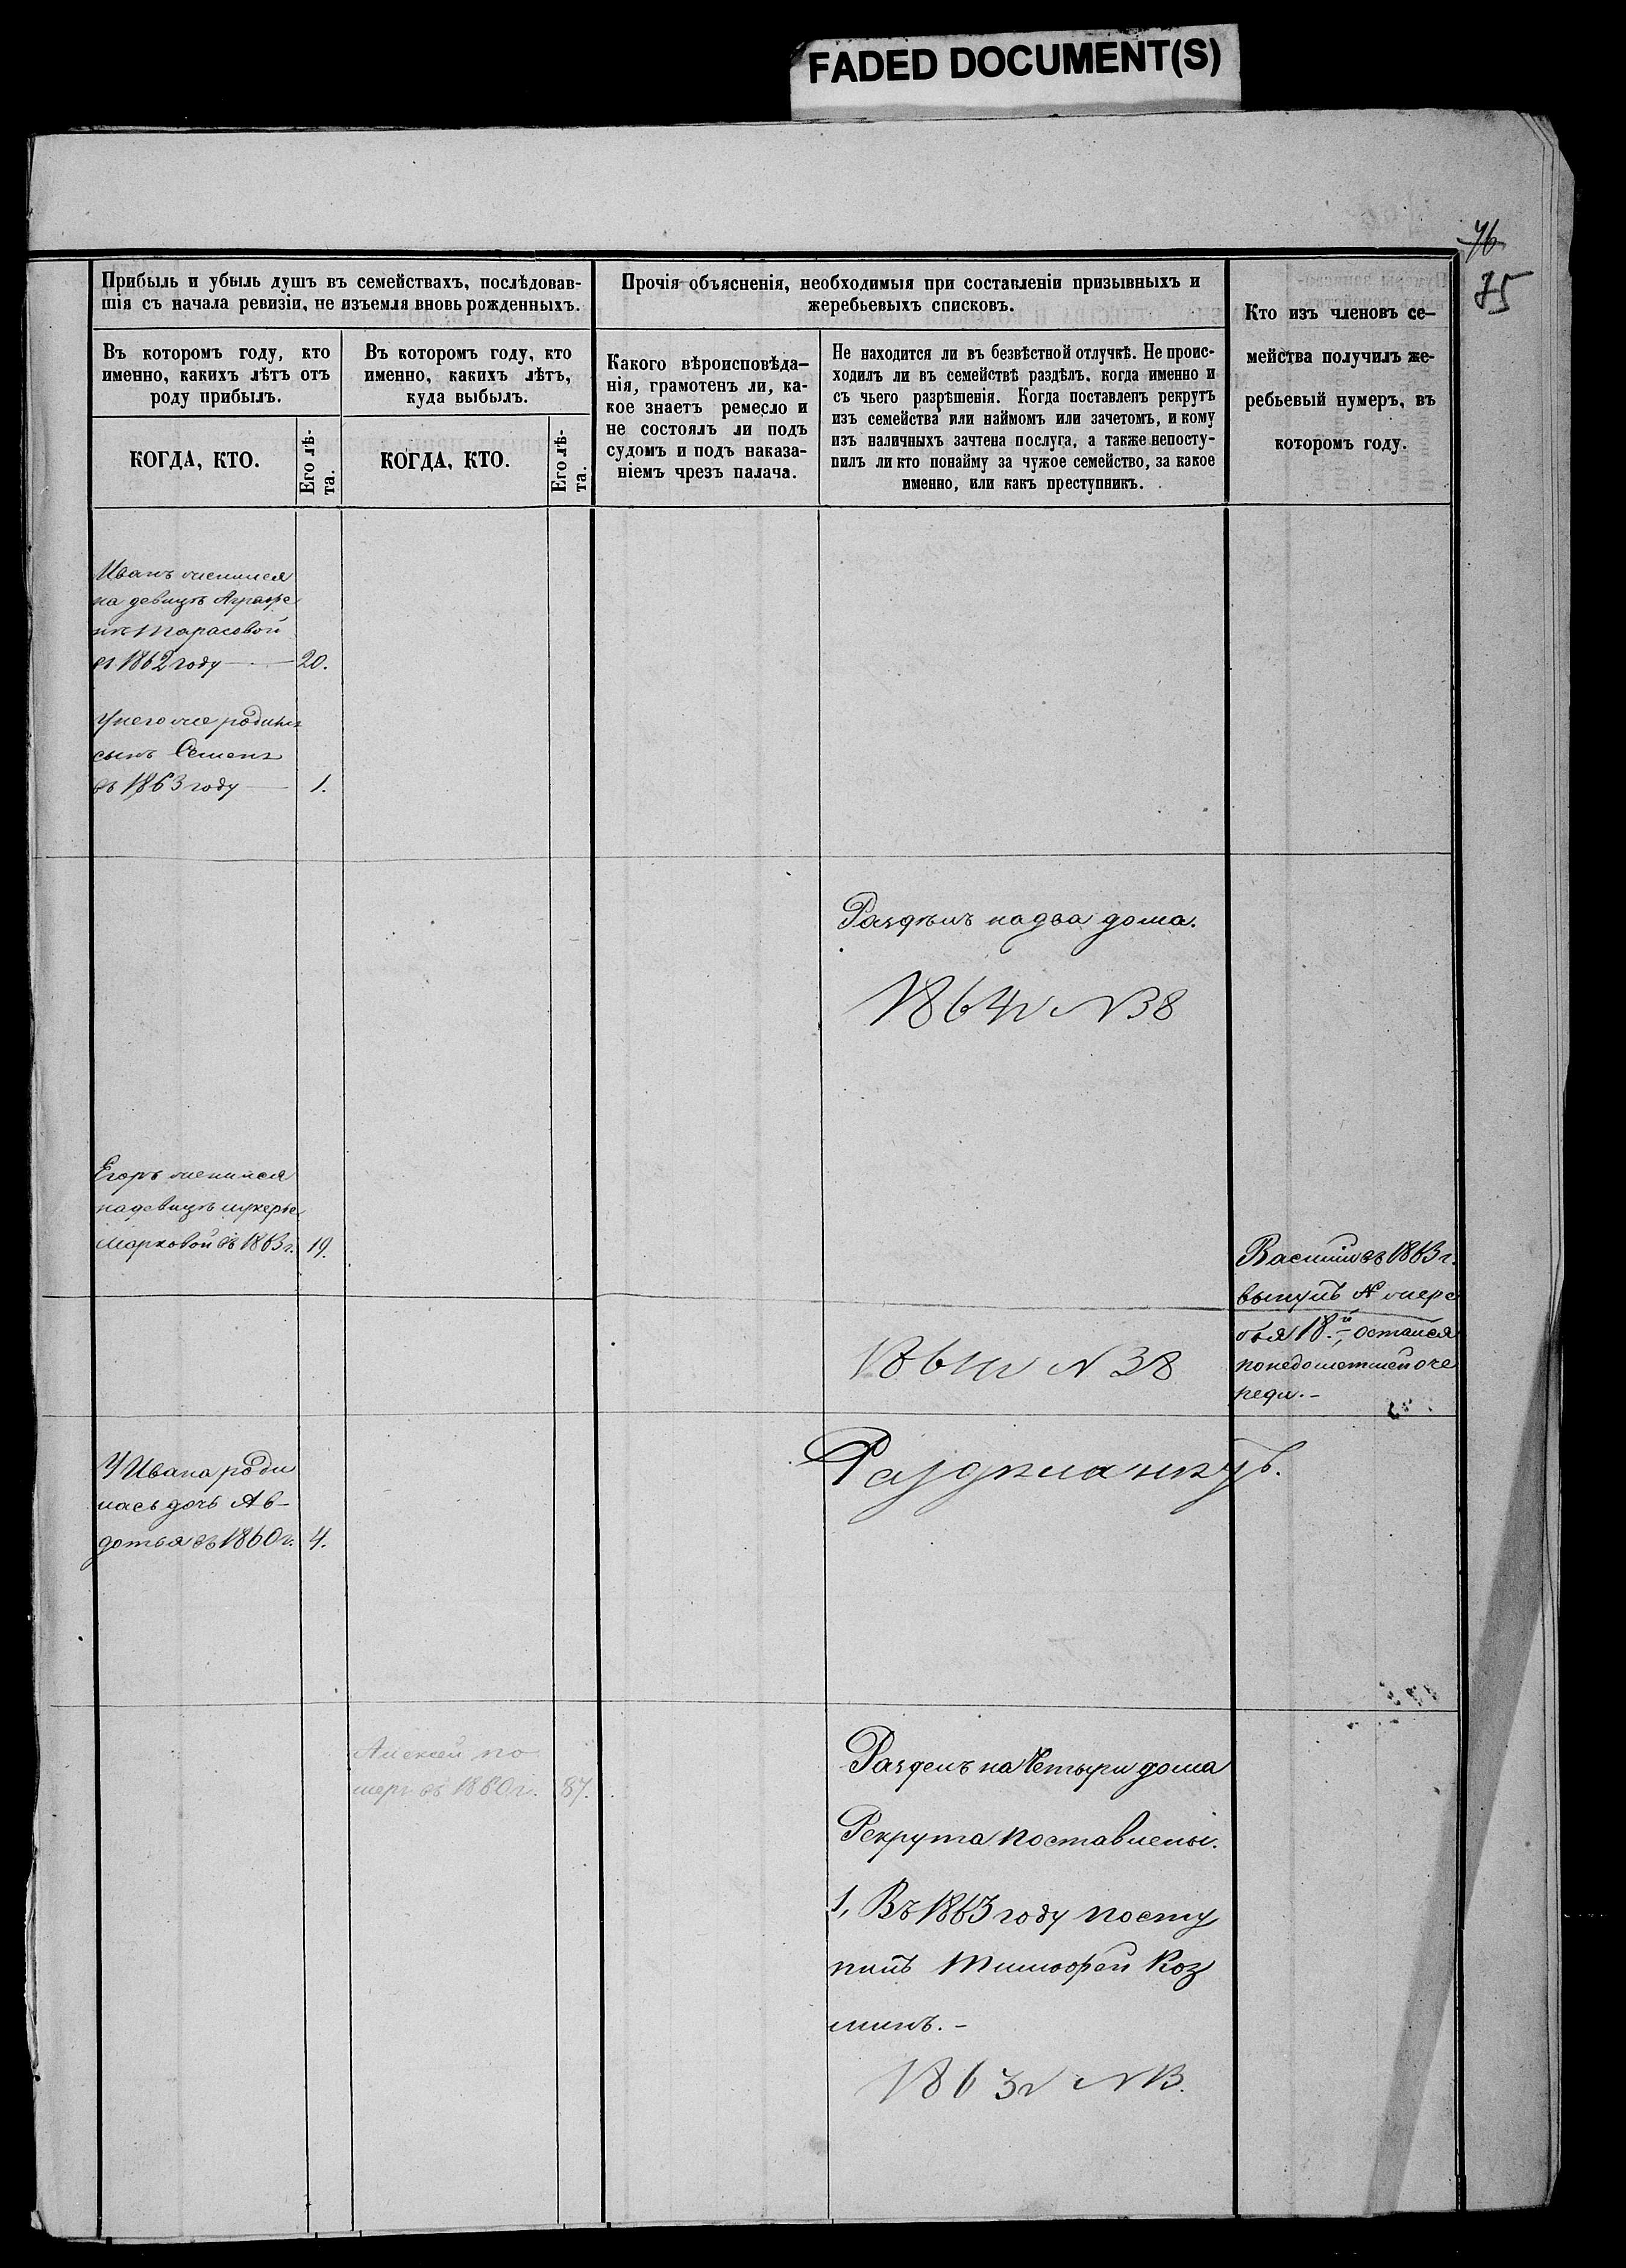 FADED DOCUMENT(S)
76
75
Прибыль и убыль душъ въ семействахъ, послѣдовав-
шія съ начала ревизіи, не изъемля вновь рожденныхъ.
Въ которомъ году, кто
именно, какихъ лѣтъ отъ
роду прибылъ.
Въ которомъ году, кто
именно, какихъ лѣтъ,
куда выбылъ.
КОГДА, КТО.
Его лѣ-
та.
КОГДА, КТО.
Его лѣ-
та.
Прочія объясненія, необходимыя при составленіи призывныхъ и
жеребьевыхъ списковъ.
Какого вѣроисповѣда-
нія, грамотенъ ли, ка-
кое знаетъ ремесло и
не состоялъ ли подъ
судомъ и подъ наказа-
ніемъ чрезъ палача.
Не находится ли въ безвѣстной отлучкѣ. Не проис-
ходилъ ли въ семействѣ раздѣлъ, когда именно и
съ чьего разрѣшенія. Когда поставленъ рекрутъ
изъ семейства или наймомъ или зачетомъ, и кому
изъ наличныхъ зачтена послуга, а также непосту-
пилъ ли кто понайму за чужое семейство, за какое
именно, или какъ преступникъ.
Кто изъ членовъ се-
мейства получилъ же-
ребьевый нумеръ, въ
которомъ году.
Иванъ женился
на девицѣ Аграфе
нѣ Тарасовой
въ 1862 году — 20.
У него же родился
сынъ Семенъ
въ 1863 году — 1.
Раздѣлъ на два дома.
1864 г N 38
Егоръ женился
на девицѣ лукерье
Марковой въ 1863 г. 19.
Василий въ 1863 г.
вынулъ № жере
бья 18.й, остался
по недошетшей оче
реди. -
1864 г N 38
У Ивана роди
лась дочь Ав-
дотья въ 1860 г. 4.
Раздела нѣтъ.
Алексей по
меръ въ 1860 г. 87.
Разделъ на Четыри дома
Рекрута поставлены.
1, Въ 1863 году посту
пилъ Тимофей Коз
минъ. -
1863 г N 13.